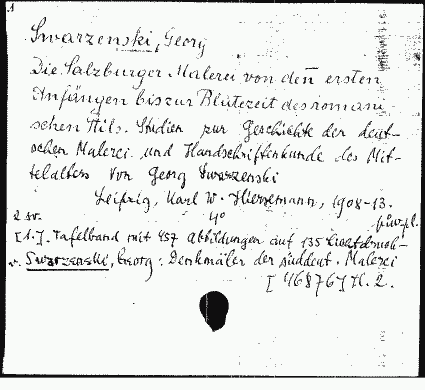 1
Swarzenski, Georg
Die Salzburger Malerei von den ersten
Anfängen bis zur Blütezeit des romani
schen Stils. Studien zur Geschichte der deut-
schen Malerei und Handschriftenkunde des Mit-
telalters von Georg Swarzenski
Leipzig, Karl W. Hiersemann, 1908-13.
2 4°
[1.]. Tafelband mit 457 Abbildungen auf 135 Lichtdruck-
v. Swarzenski, Georg: Denkmäler der süddeut. Malerei
[46876] H. 2.